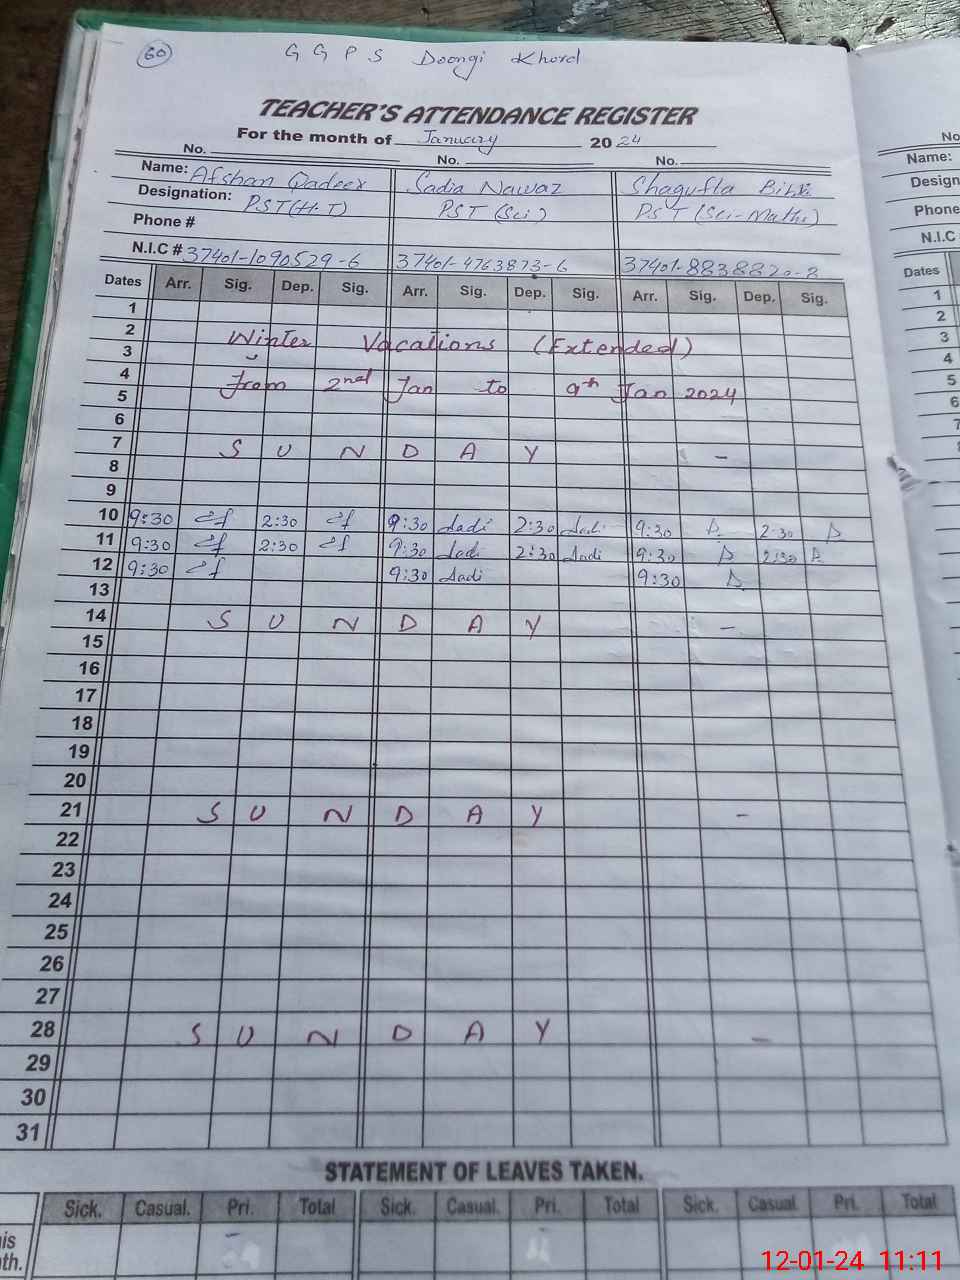 60
G G P S Doongi Khord
TEACHER'S ATTENDANCE REGISTER
For the month of January 2024
No. No. No.
Name: Afshan Qadeer Sadia Nawaz Shagufta Bibi
Designation: PST(H.T) PST (Sci) PST (Sci-Math)
Phone #
N.I.C # 37401-1090529-6 37401-4763873-6 37401-8838820-8
Dates Arr. Sig. Dep. Sig. Arr. Sig. Dep. Sig. Arr. Sig. Dep. Sig.
1
2 Winter Vacations (Extended)
3
4 from 2nd Jan to 9th Jan 2024
5
6
7 S U N D A Y -
8
9
10 9:30 2:30 9:30 Sadi 2:30 Sadi 9:30 2:30
11 9:30 2:30 9:30 Sadi 2:30 Sadi 9:30 2:30
12 9:30 9:30 Sadi 9:30
13
14 S U N D A Y -
15
16
17
18
19
20
21 S U N D A Y -
22
23
24
25
26
27
28 S U N D A Y -
29
30
31
STATEMENT OF LEAVES TAKEN.
Sick. Casual. Pri. Total Sick. Casual. Pri. Total Sick. Casual. Pri. Total
is
th.
No
Name:
Design
Phone
N.I.C
Dates
1
2
3
4
5
6
7
12-01-24 11:11